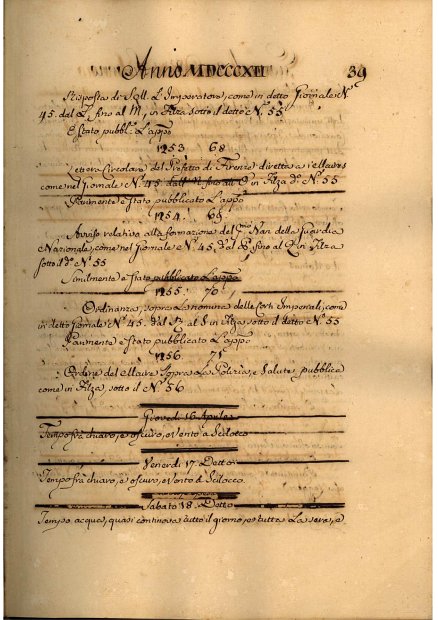 Anno MDCCCXII 39
Risposta di S. M. L'Imperatore, come in detto Giornale N.
45. dal L. fino al M, in Filza sotto il detto N. 55
È stato pubb. L'appo
1253 68
Lettera Circolare del Prefetto di Firenze diretta a i Maires
come nel Giornale N. 45. dall' N fino all' O in Filza d.o N. 55
Parimente è stato pubblicato L'appo
1254. 69
Avviso relativo alla formazione del Nar. della Guardia
Nazionale, come nel Giornale N. 45. dal P. fino al Q in Filza
sotto il d.o N. 55
Similmente è stato pubblicato L'appo
1255. 70
Ordinanza, sopra La nomina delle Corti Imperiali, come
in detto Giornale N. 45. dal R. al S in Filza sotto il detto N. 55
Parimente è stato pubblicato L'appo
1256 71
Ordine del Maire Sopra La Pulizia, e Salute pubblica
come in Filza, sotto il N. 56
Giovedì 16 Aprile
Tempo fra chiaro, e oscuro, e Vento a Scilocco
Venerdì 17. Detto
Tempo fra chiaro, e oscuro, e Vento a Scilocco.
Sabato 18. Detto
Tempo acqua, quasi continova tutto il giorno, e tutta La sera, e